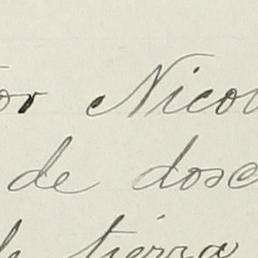 or Nicol
de dosc
de tierra